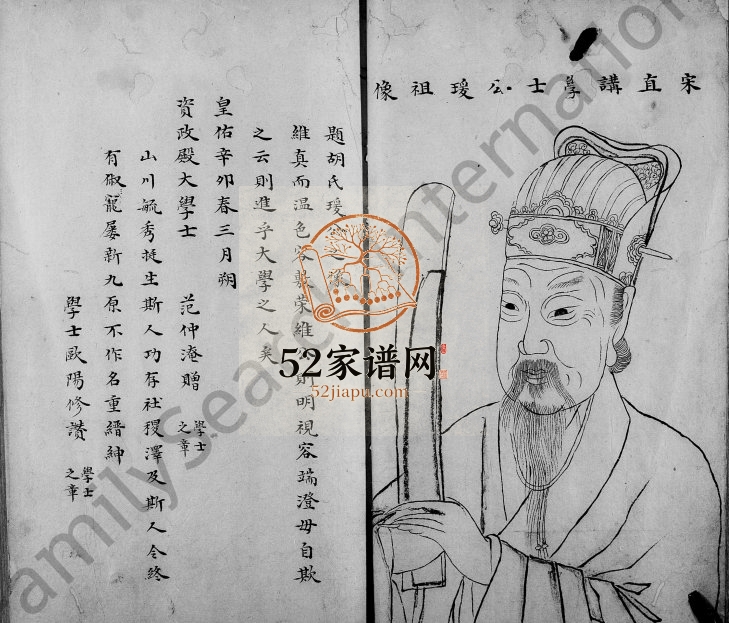 宋直講學士公瑗祖像
題胡氏瑗
維真而温色容 榮維 則明視容端澄毋自欺
之云則進乎大學之人矣
皇佑辛卯春三月朔
資政殿大學士 范仲淹贈 學士之章
山川毓秀挺生斯人功存社稷澤及斯人令終
有俶寵屡新九原不作名重縉紳
學士歐陽修讚 學士之章
52家谱网
52jiapu.com
amilySearch International